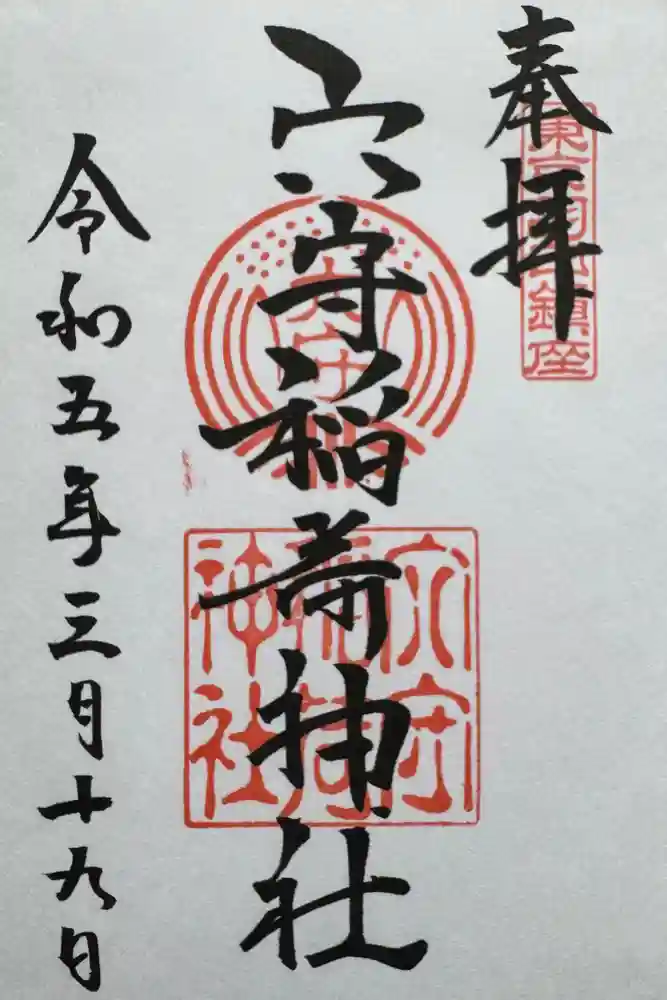 奉拝
東京羽田鎮座
穴守稲荷神社
穴守
稲荷
神社
令和五年三月十九日